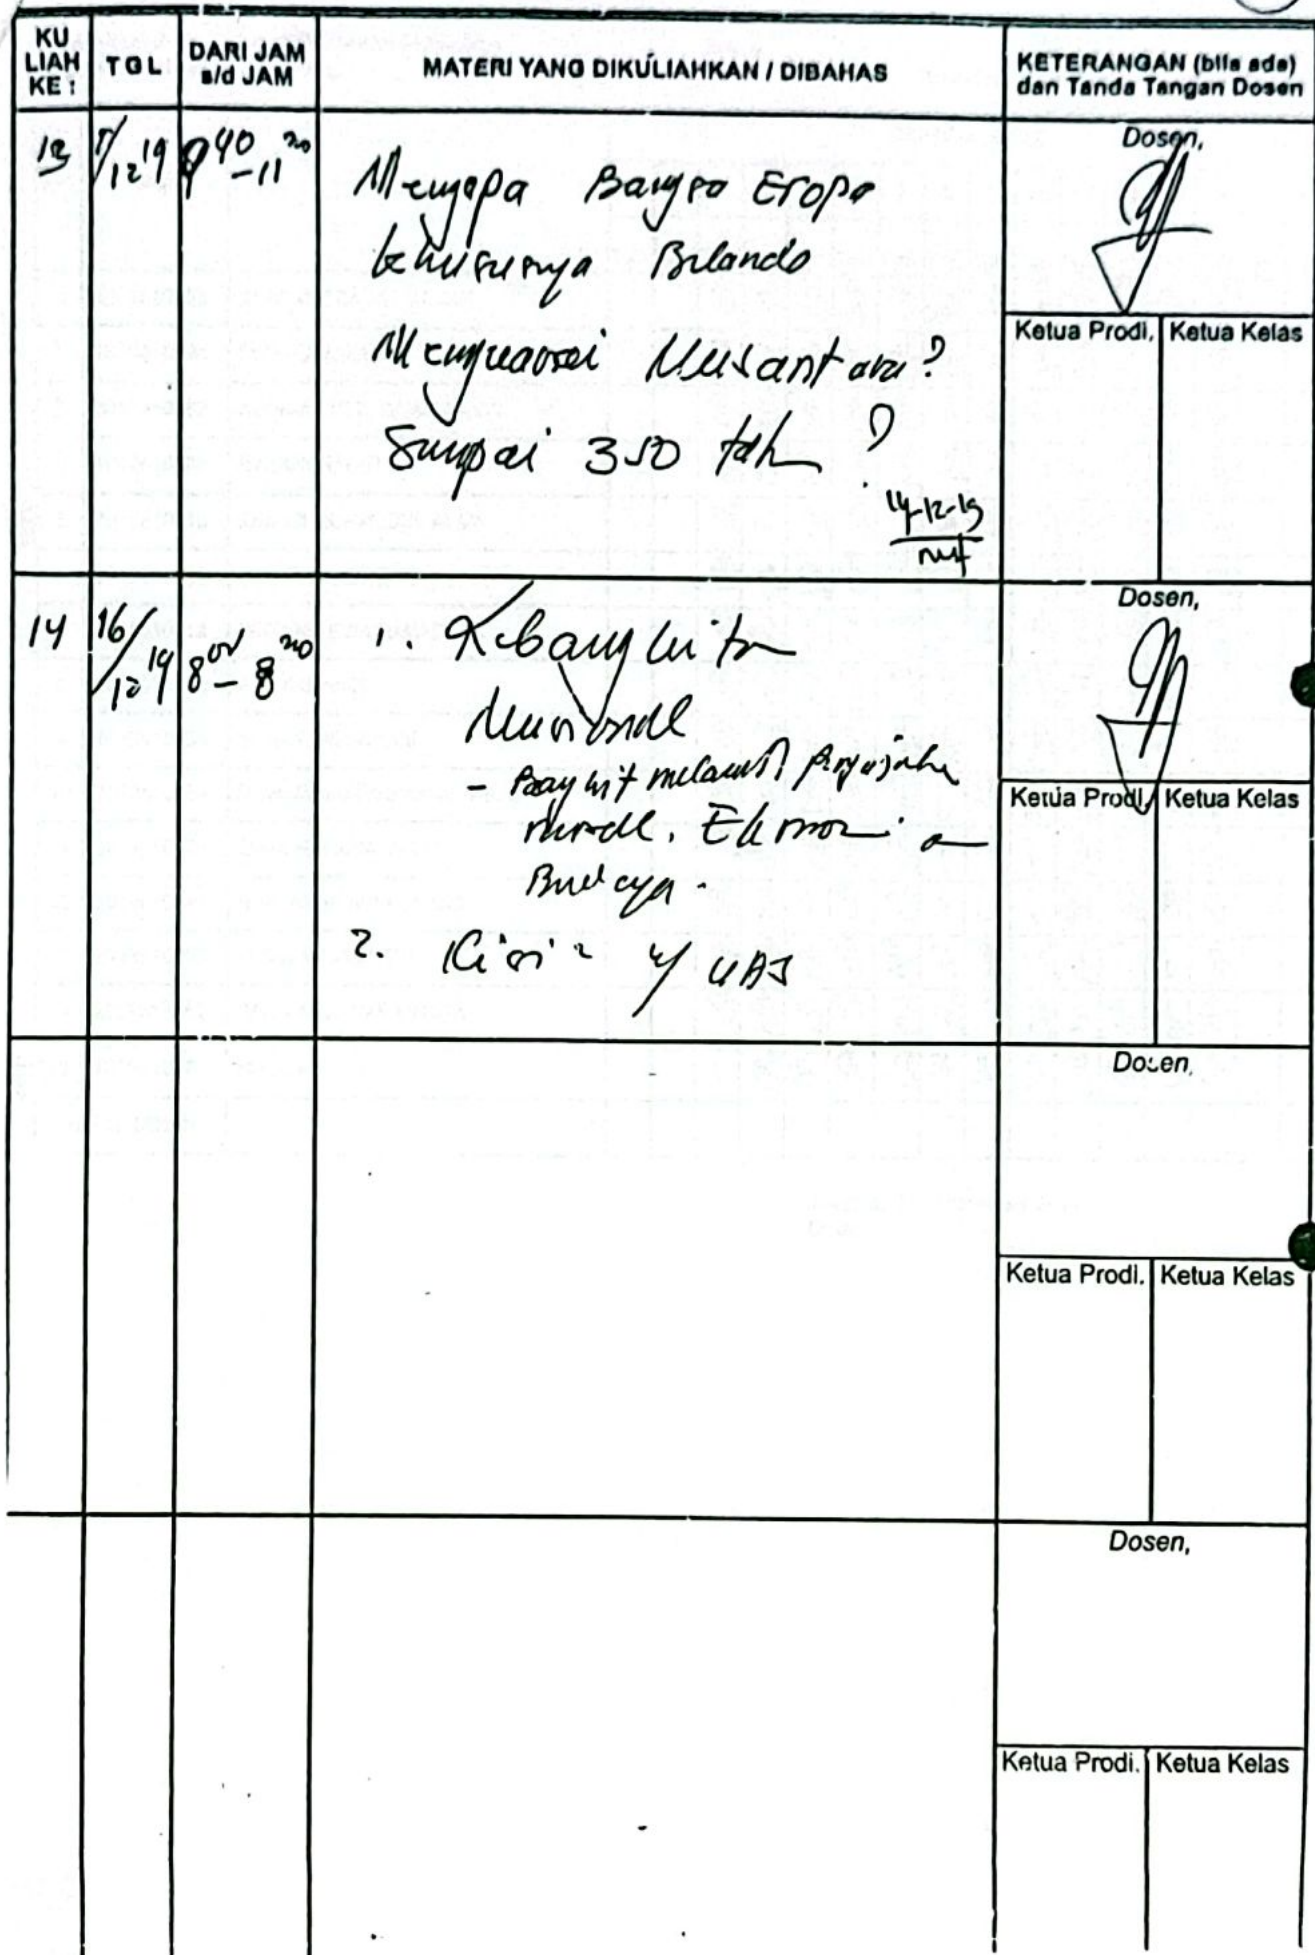 KU
LIAH
KE :
TGL
DARI JAM
s/d JAM
MATERI YANG DIKULIAHKAN / DIBAHAS
KETERANGAN (bila ada)
dan Tanda Tangan Dosen
13
/12 19
9 40 - 11 20
Mengapa Bangsa Eropa
khususnya Belanda
Menguasai Nusantara?
Sampai 350 thn ?
14-12-19
Dosen,
Ketua Prodi.
Ketua Kelas
14
16/12 19
8 00 - 8 20
1. Kebangkitan
Nasional
- Bangkit melawan penjajahan
Budaya.
2. Kisi2 u/ UAS
Dosen,
Ketua Prodi.
Ketua Kelas
Dosen,
Ketua Prodi.
Ketua Kelas
Dosen,
Ketua Prodi.
Ketua Kelas